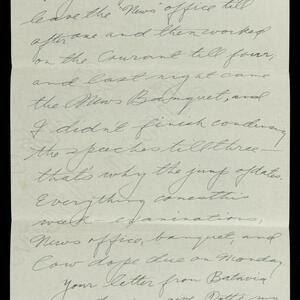 leave the "News" office till
after one and then worked
on the Courant till four,
and last night came
the News Banquet, and
I didn't finish condensing
the speeches till three —
that's why the jump of dates.
Everything comes this
week — examinations,
News office, banquet, and
Cow dope due on Monday
Your letter from Batavia
and